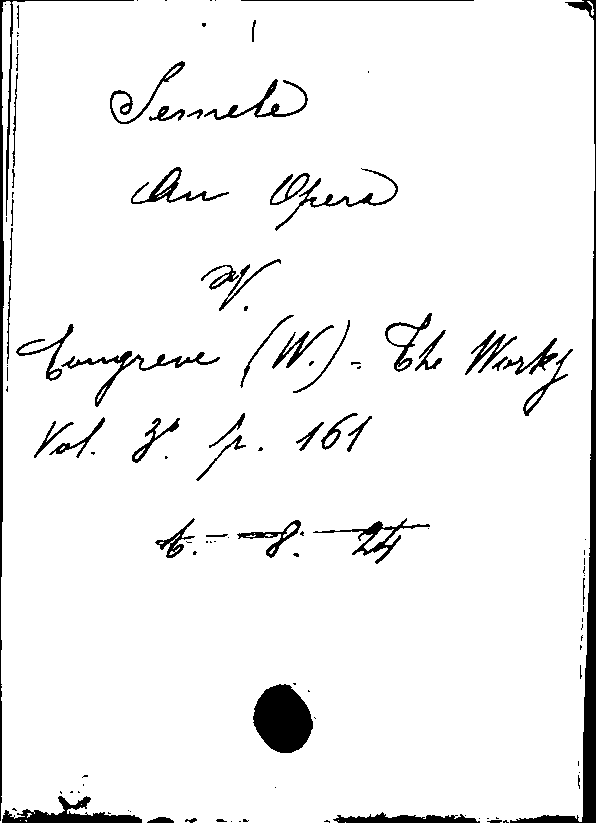 Semele
An Opera
V.
Congreve (W.) - The Works
Vol. 3º. p. 161
6. - 8. 24